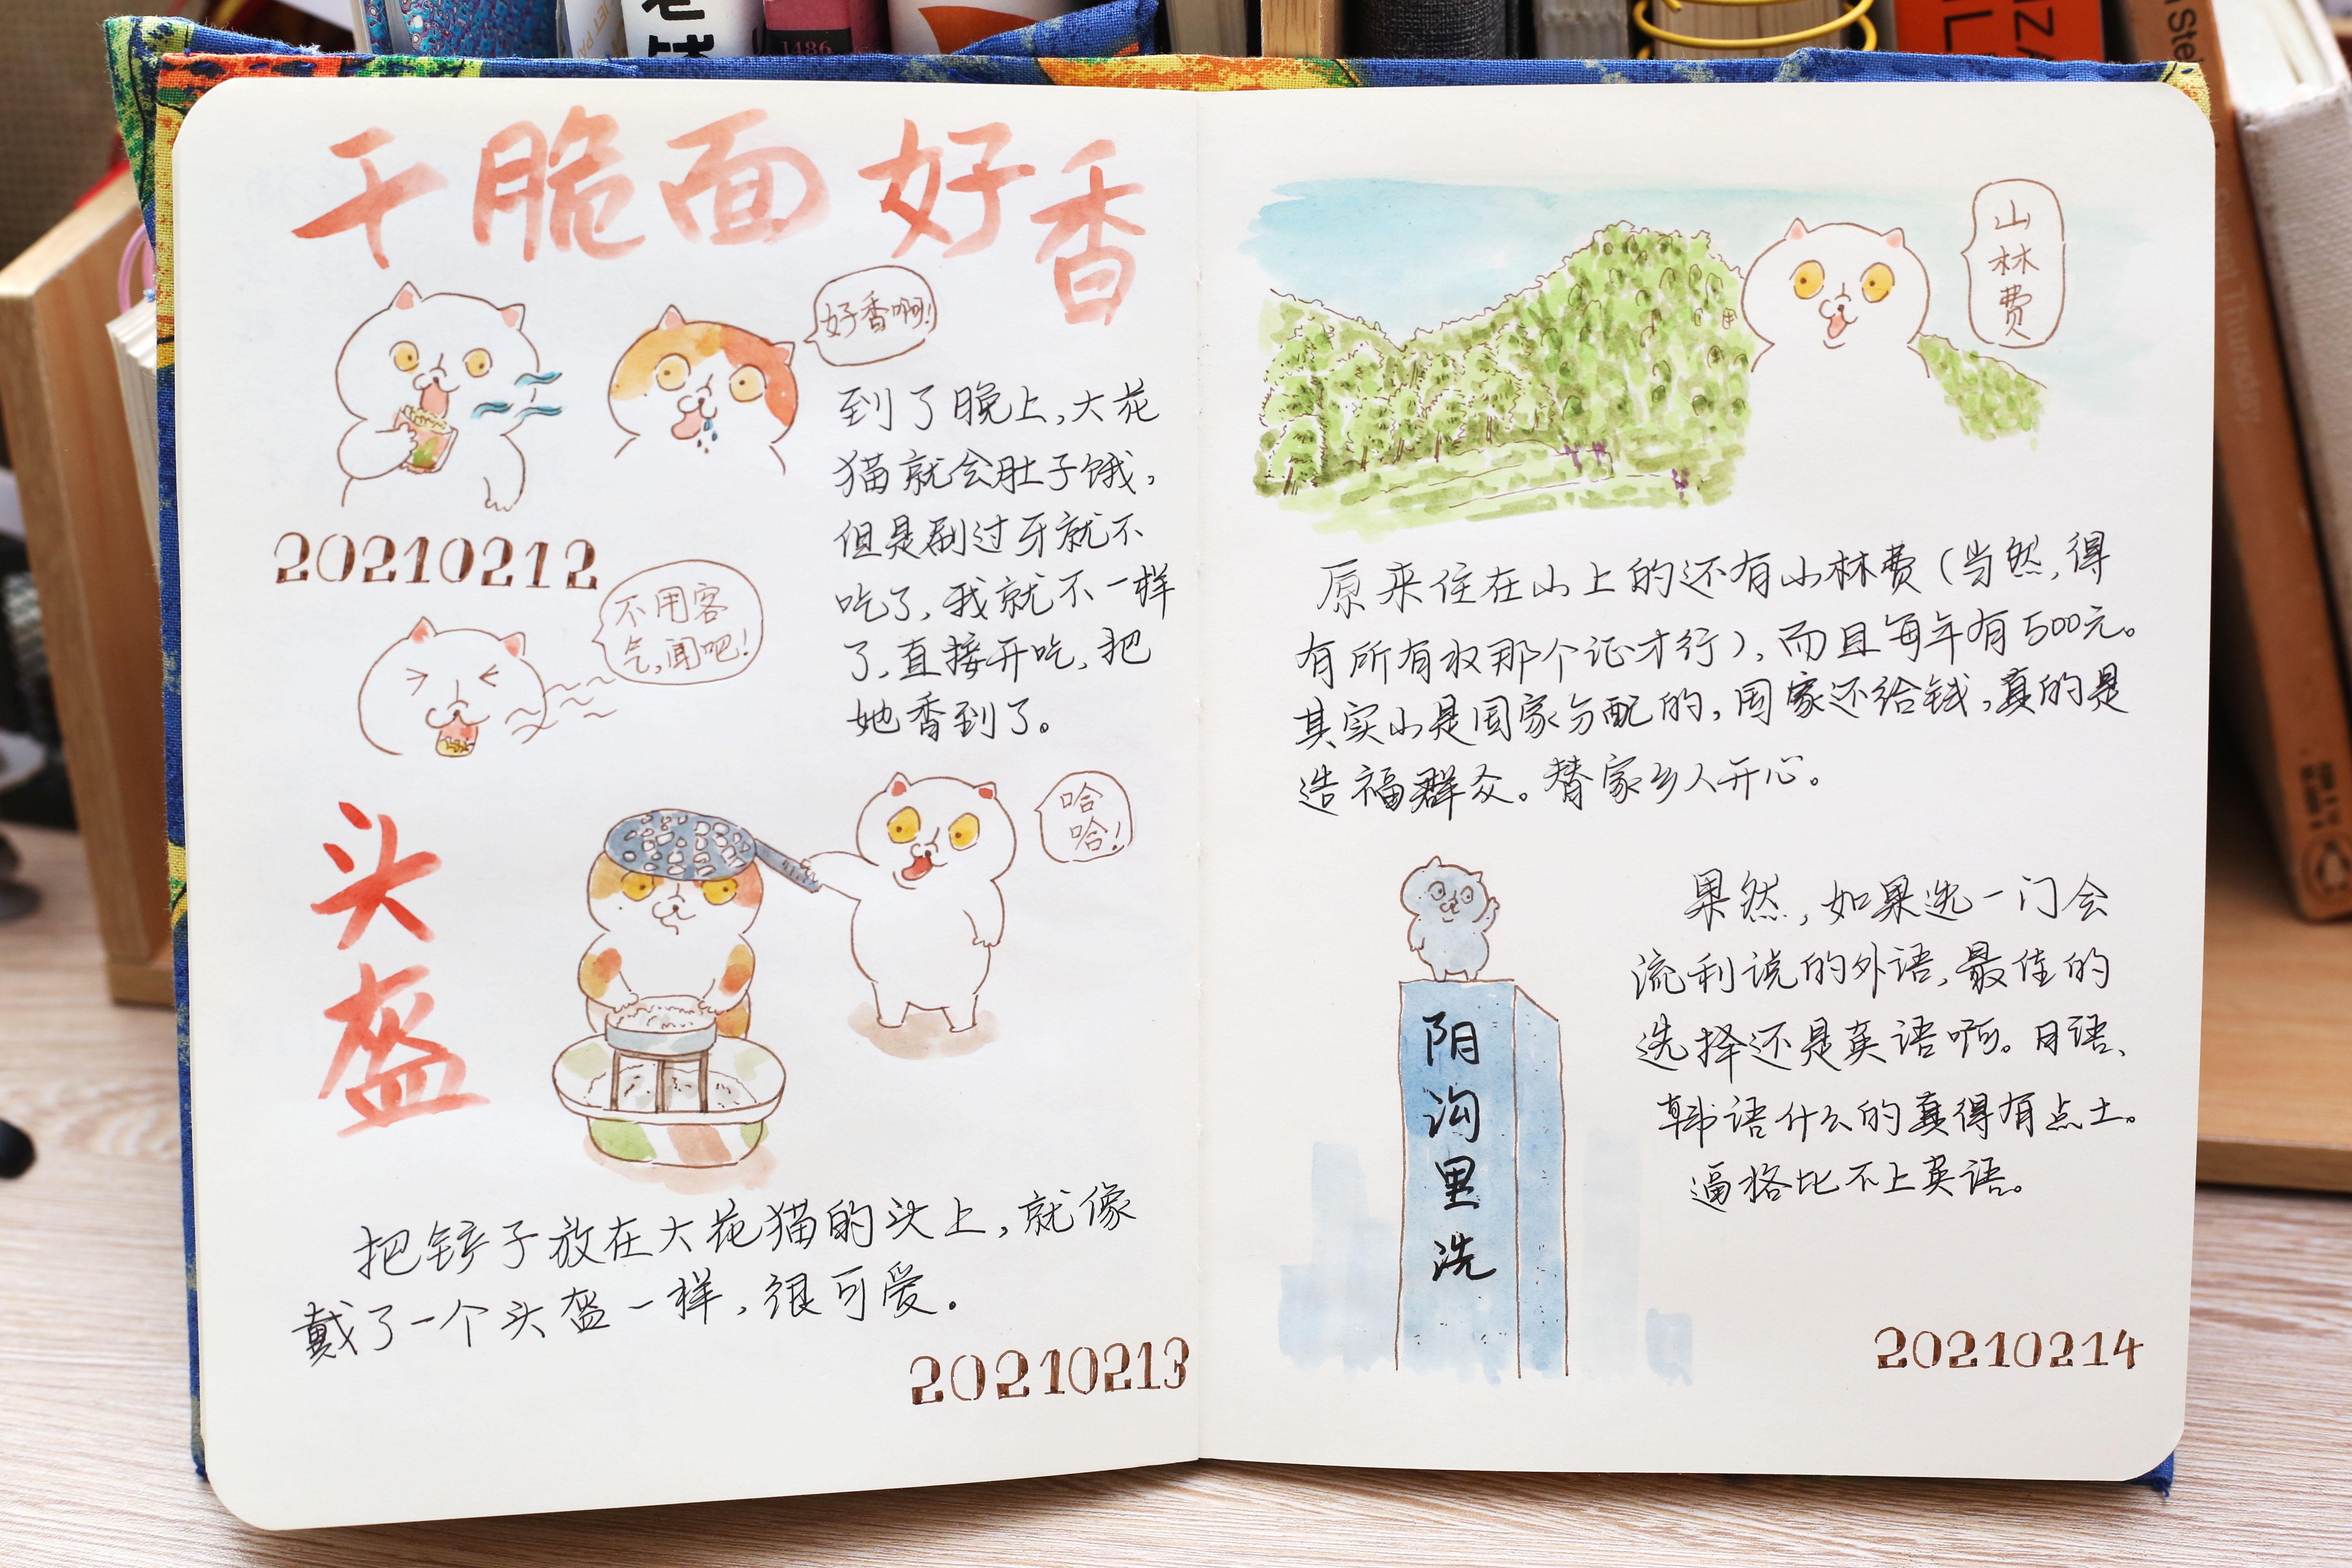 干脆面好香
好香啊!
20210212
不用客
气,闻吧!
到了晚上,大花
猫就会肚子饿,
但是刷过牙就不
吃了,我就不一样
了,直接开吃,把
她香到了。
头
盔
哈
哈!
把铲子放在大花猫的头上,就像
戴了一个头盔一样,很可爱。
20210213
山
林
费
原来住在山上的还有山林费(当然,得
有所有权那个证才行),而且每年有500元。
其实山是国家分配的,国家还给钱,真的是
造福群众。替家乡人开心。
阴
沟
里
洗
果然,如果选一门会
流利说的外语,最佳的
选择还是英语啊。日语、
韩语什么的真得有点土。
逼格比不上英语。
20210214
1486